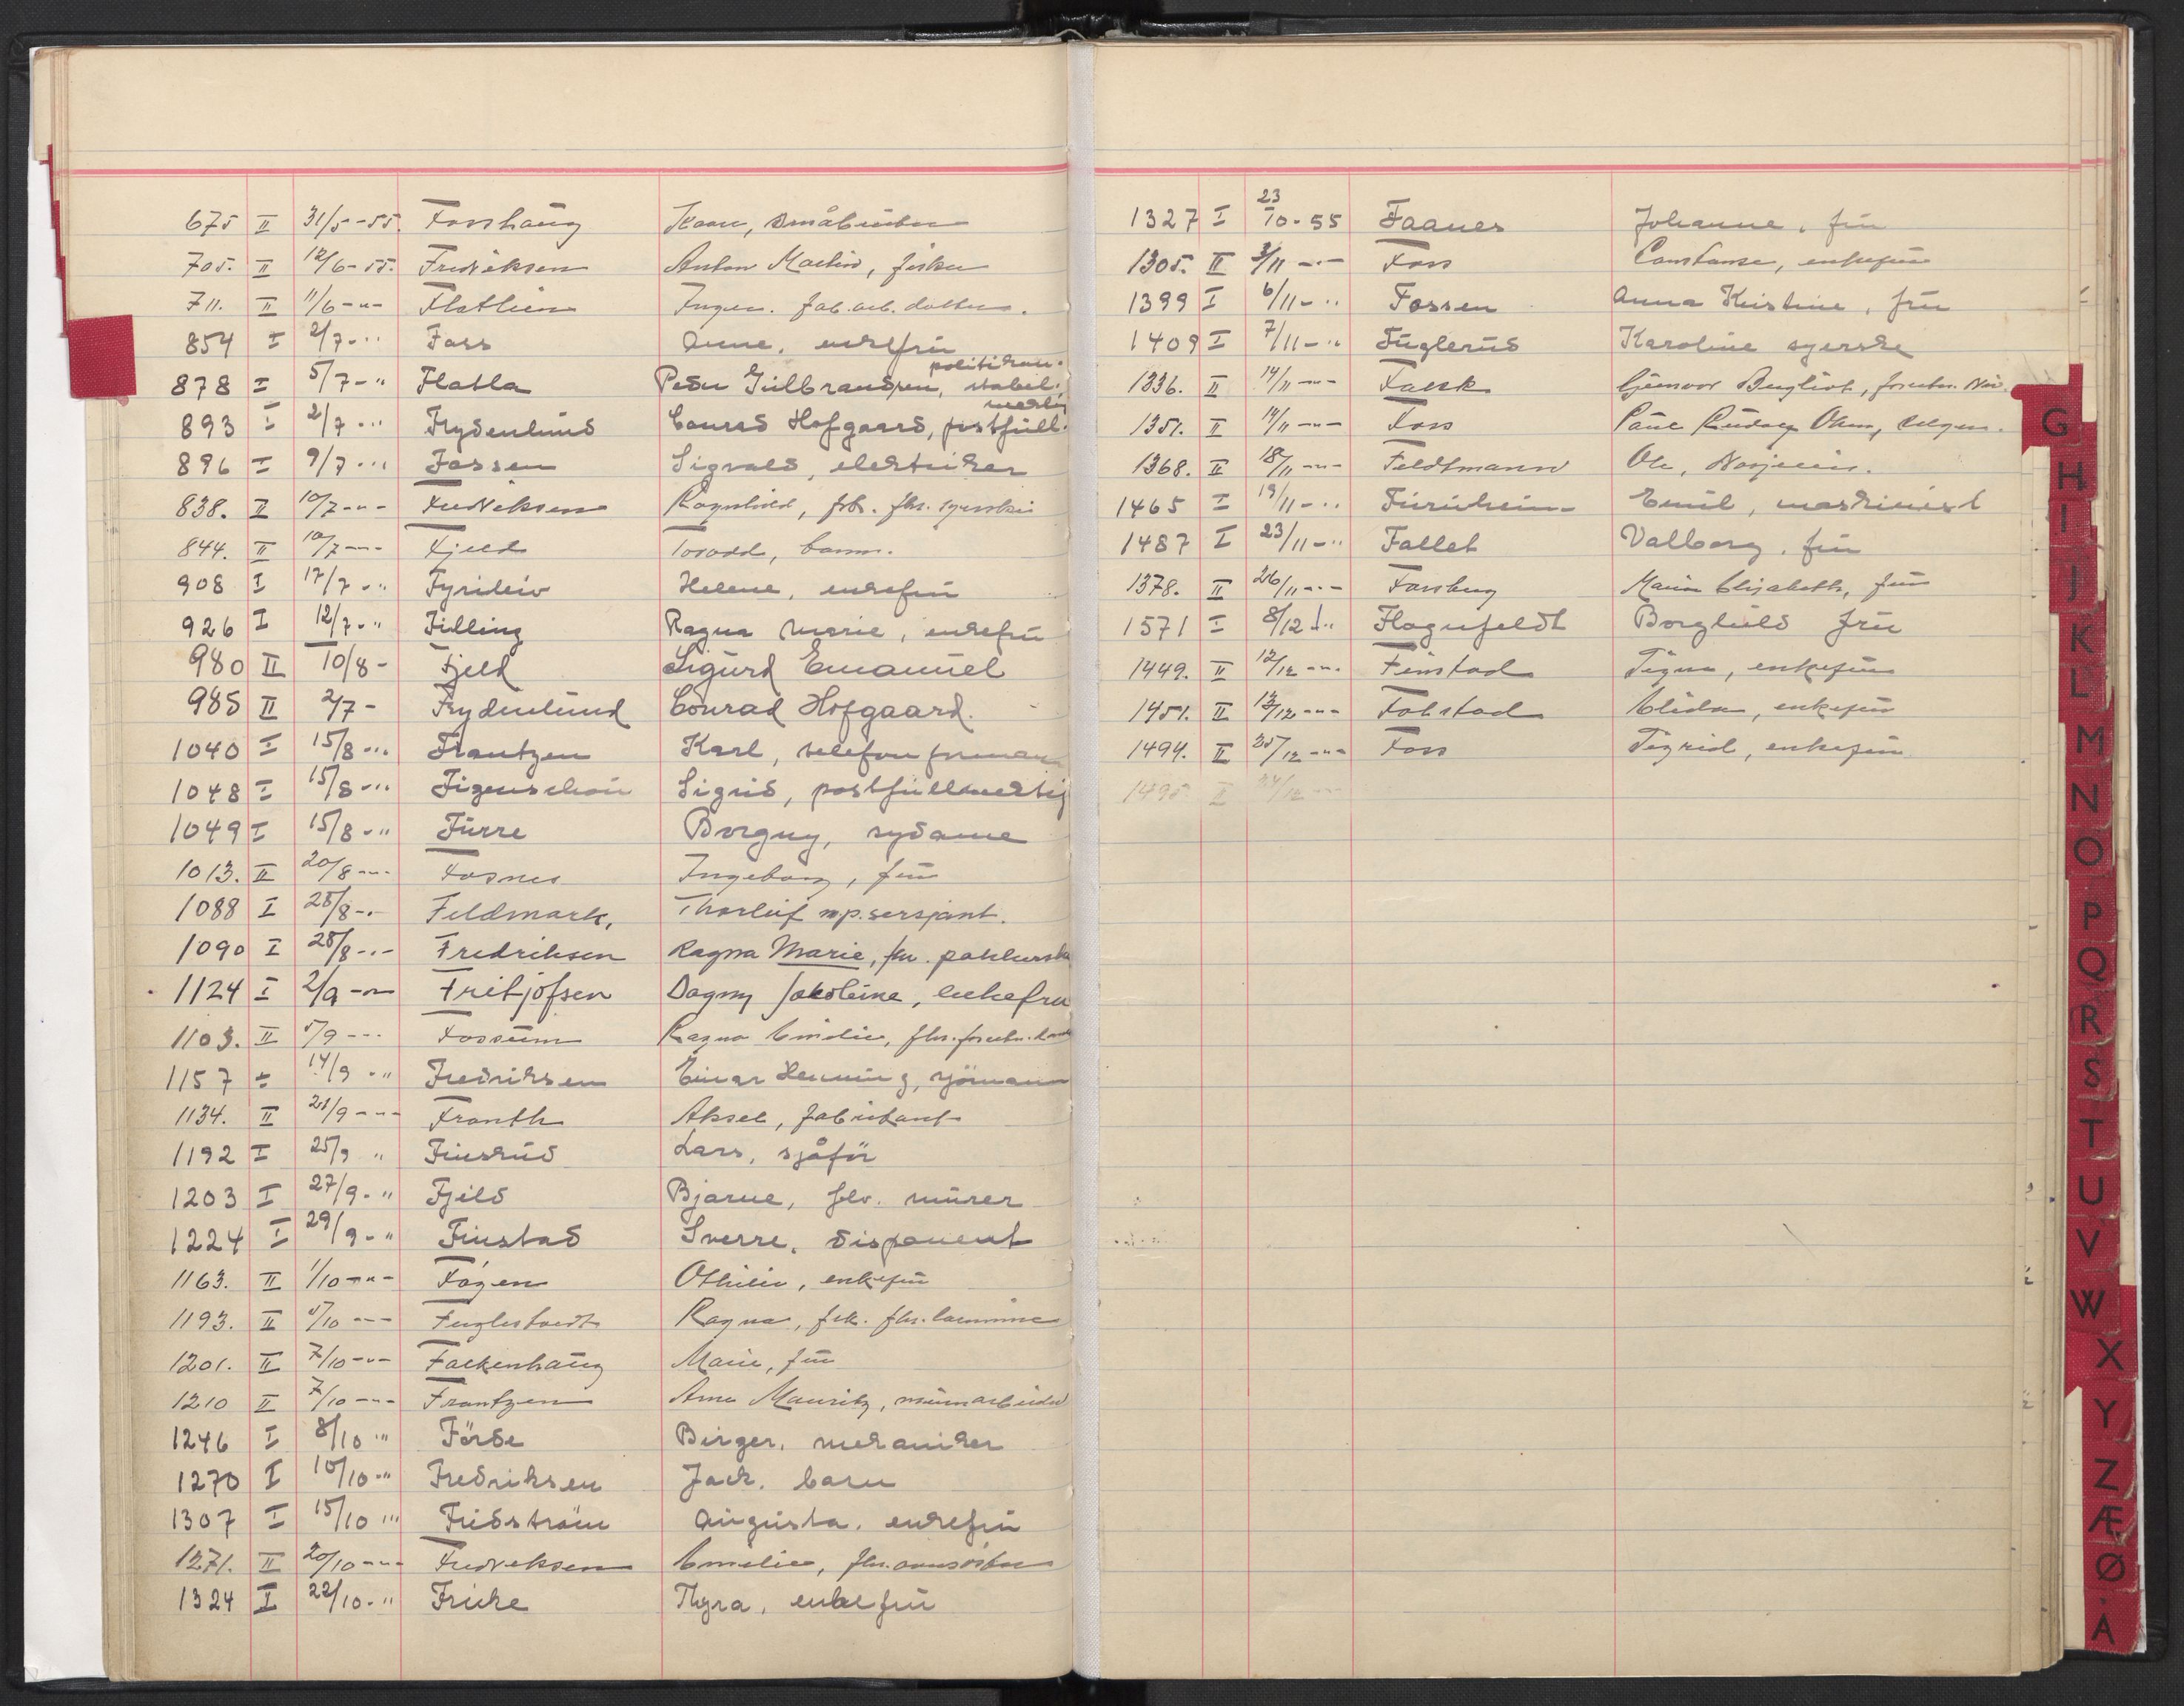 675 II 31/5-55. Fosshaug Kaare, småbruker
705. II 12/6-55. Fredriksen Anton Martin, fisker
711. II 11/6-"- Flatlien Inger. fab.arb. datter.
854 I 2/7-" Foss Anne, enkefru
878 I 5/7-" Flatla Peder Gulbrandsen, politikon-stabel.
893 I 2/7-" Frydenlund Conrad Hofgaard, postfullmektig
896 I 9/7-" Fossen Sigvald, elektriker
838. II 10/7-"- Fredriksen Ragnhild, frk. fhv. syerske
844. II 10/7-"- Fjeld Torodd, barn.
908 I 17/7-" Fyrileiv Helene, enkefru
926 I 12/7-" Filling Ragna Marie, enkefru
980 II 10/8- Fjeld Sigurd Emanuel
985 II 2/7- Frydenlund Conrad Hofgaard.
1040 I 15/8-" Frantzen Karl, telefonformann
1048 I 15/8-" Figenschou Sigrid, postfullmektig
1049 I 15/8-" Furre Borgny, sydame
1013. II 20/8-"- Fosnes Ingeborg, fru
1088 I 28/8-"- Feldmark, Thorleif mp.sersjant.
1090 I 28/8-"- Fredriksen Ragna Marie, fhv. pakkerske
1124 I 2/9-"- Fritjofsen Dagny Jakobine, enkefru
1103. II 5/9-"- Fossum Ragna Emilie, fhv.
1157 I 14/9-" Fredriksen Einar Henning, sjömann
1134. II 21/9-"- Franth Aksel, fabrikant
1192 I 25/9 " Finsrud Lars, sjåfør
1203 I 27/9-" Fjeld Bjarne, flv. murer
1224 I 29/9-" Finstad Sverre, disponent
1163. II 1/10-"- Fagen Othilie, enkefru
1193. II 5/10-"- Fuglestvedt Ragna, frk. fhv.
1201. II 7/10-"- Falkenhaug Marie, fru
1210 II 7/10-"- Frantzen Arne Mauritz, murarbeider
1246 I 8/10 " Förde Birger, mekaniker
1270 I 10/10-" Fredriksen Jack, barn
1307 I 15/10 " Fridström Augusta, enkefru
1271. II 20/10-"- Fredriksen Emelie, fhv.
1324 I 22/10-" Fricke Thyra, enkefru
1327 I 23/10-55 Faanes Johanne, fru
1305. II 3/11-"- Foss Constanse, enkefru
1399 I 6/11-" Fossen Anna Kristine, fru
1409 I 7/11-" Fuglerud Karoline syerske
1336. II 14/11-"- Falck Gunvor Bergliot,
1351. II 14/11-"- Foss Paul Rudolf
1368. II 18/11-"- Feldtmann Ole,
1465 I 19/11-" Furuheim- Emil, maskinist
1487 I 23/11-" Fallet Valborg, fru
1378. II 26/11-"- Forsberg Marie Elisabeth, fru
1571 I 8/12-" Flognfeldt Borghild fru
1449. II 12/12-"- Finstad Signe, enkefru
1451. II 13/12-"- Folstad Elida, enkefru
1494. II 25/12-"- Foss Sigrid, enkefru
1495. II 24/12-"-
G
H
I
J
K
L
M
N
O
P
Q
R
S
T
U
V
W
X
Y
Z
Æ
Ø
Å